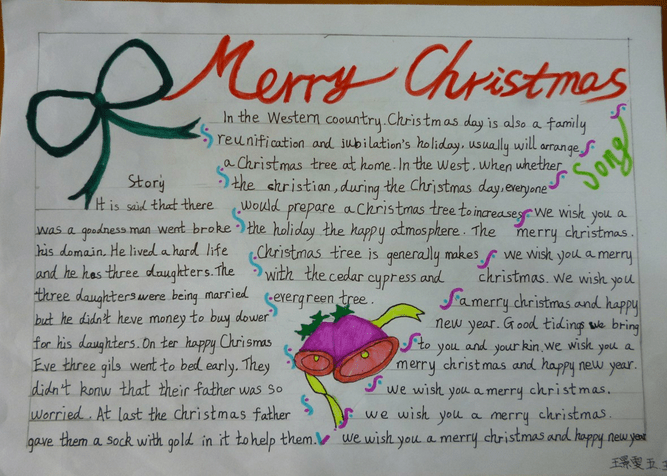 Merry Christmas
In the Western coountry. Christmas day is also a family
reunification and jubilation's holiday. usually will arrange
a Christmas tree at home. In the West. when whether
the christian, during the Christmas day, everyone
would prepare a Christmas tree to increases
the holiday the happy atmosphere. The
Christmas tree is generally makes
with the cedar cypress and
evergreen tree.
Story
It is said that there
was a goodness man went broke
his domain. He lived a hard life
and he has three daughters. The
three daughters were being married
but he didn't heve money to buy dower
for his daughters. On ter happy Chrismas
Eve three gils went to bed early. They
didn't konw that their father was so
worried. At last the Christmas father
gave them a sock with gold in it to help them.
Song
We wish you a
merry christmas.
we wish you a merry
christmas. We wish you
a merry christmas and happy
new year. Good tidings we bring
to you and your kin. we wish you a
merry christmas and happy new year.
we wish you a merry christmas.
we wish you a merry christmas.
we wish you a merry christmas and happy new year